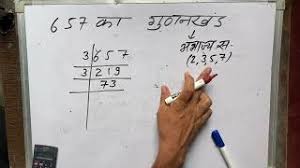 657 का गुणनखंड
↓
अभाज्य सं.
(2,3,5,7)
3 657
3 219
73